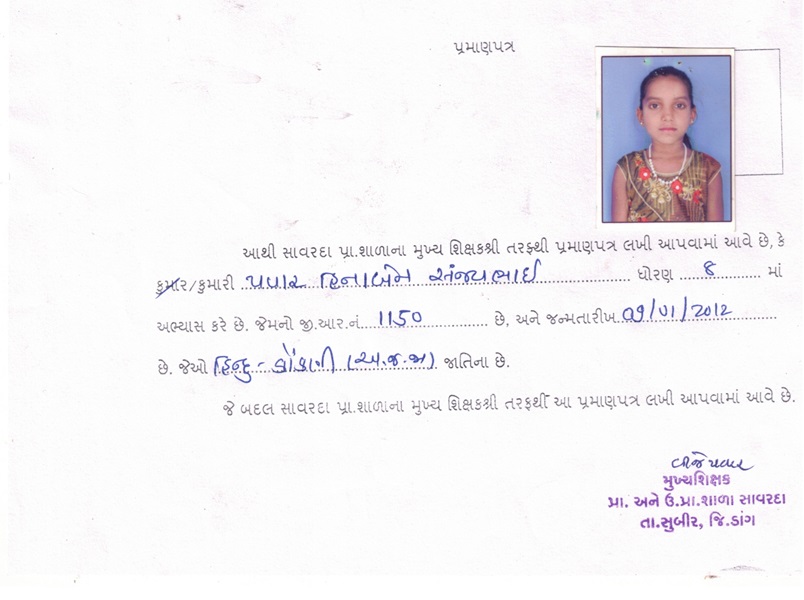 પ્રમાણપત્ર
આથી સાવરદા પ્રા.શાળાના મુખ્ય શિક્ષકશ્રી તરફથી પ્રમાણપત્ર લખી આપવામાં આવે છે, કે
કુમાર/કુમારી પવાર હિનાબેન સંજયભાઈ ધોરણ 8 માં
અભ્યાસ કરે છે. જેમનો જી.આર.નં. 1150 છે, અને જન્મતારીખ 09/01/2012
છે. જેઓ હિન્દુ - કોંકણી (અ.જ.જા) જાતિના છે.
જે બદલ સાવરદા પ્રા.શાળાના મુખ્ય શિક્ષકશ્રી તરફથી આ પ્રમાણપત્ર લખી આપવામાં આવે છે.
મુખ્યશિક્ષક
પ્રા. અને ઉ.પ્રા.શાળા સાવરદા
તા.સુબીર, જિ.ડાંગ